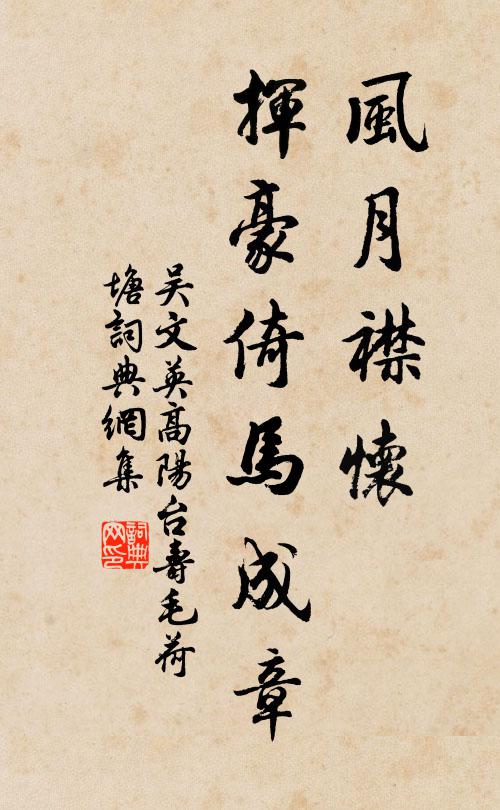 風月襟懷
揮豪倚馬成章
吴文英高陽台壽毛荷
塘詞典網集
詞典
网印